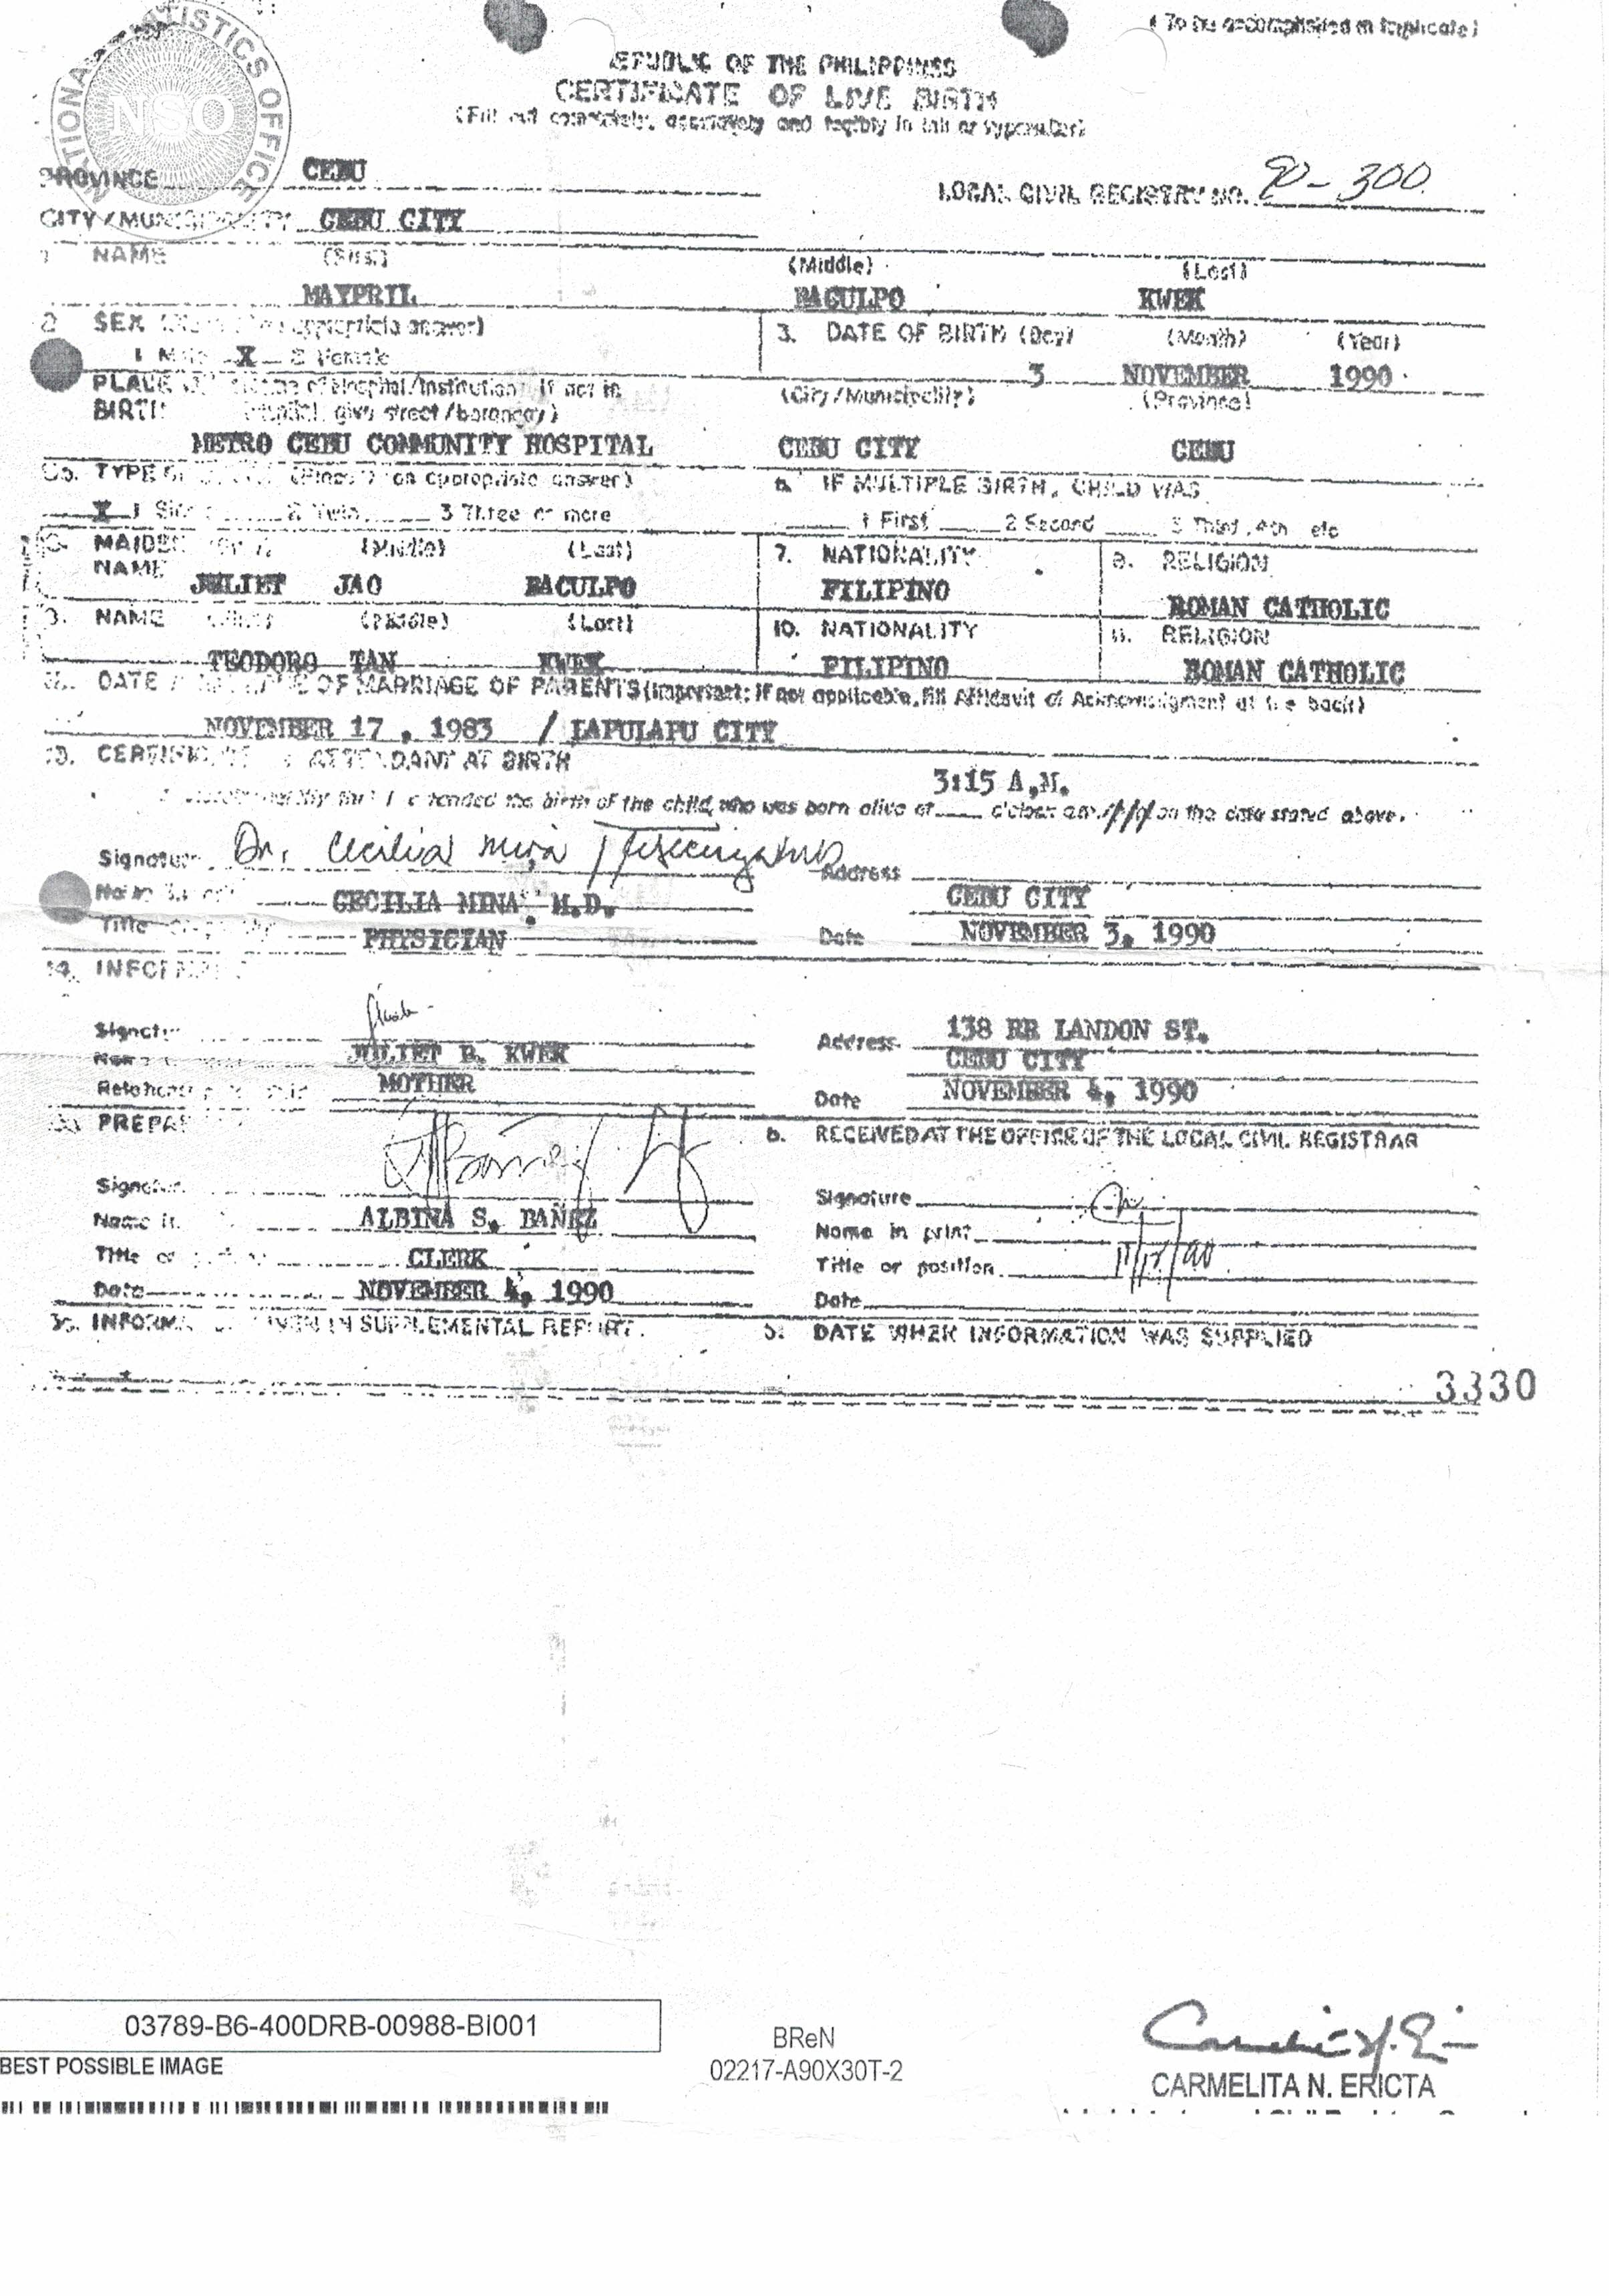 NATIONAL STATISTICS OFFICE
NSO
(To be accomplished in triplicate)
REPUBLIC OF THE PHILIPPINES
CERTIFICATE OF LIVE BIRTH
(Fill out completely, accurately and legibly in ink or typewriter)
PROVINCE CEBU
LOCAL CIVIL REGISTRY NO. 90-300
CITY/MUNICIPALITY CEBU CITY
1 NAME (First) (Middle) (Last)
MAYPRIL BACULPO KWEK
2 SEX answer) 3. DATE OF BIRTH (Day) (Month) (Year)
1 Male X 2 Female 3 NOVEMBER 1990
PLACE of Hospital/Institution; if not in (City/Municipality) (Province)
BIRTH hospital, give street/barangay)
METRO CEBU COMMUNITY HOSPITAL CEBU CITY CEBU
TYPE OF on appropriate answer) b. IF MULTIPLE BIRTH, CHILD WAS
X 1 2 Twin 3 Three or more 1 First 2 Second 3 Third, 4th etc
6. MAIDEN (Middle) (Last) 7. NATIONALITY 8. RELIGION
NAME JULIET JAO BACULPO FILIPINO ROMAN CATHOLIC
9. NAME (Middle) (Last) 10. NATIONALITY 11. RELIGION
TEODORO TAN KWEK FILIPINO ROMAN CATHOLIC
DATE OF MARRIAGE OF PARENTS (Important: if not applicable, fill Affidavit of Acknowledgment at the back)
NOVEMBER 17, 1983 / LAPULAPU CITY
13. ATTENDANT AT BIRTH
3:15 A.M.
I attended the birth of the child, who was born alive at o'clock am on the date stated above.
Signature Dr. Cecilia Mina Address
CECILIA MINA M.D. CEBU CITY
Title PHYSICIAN Date NOVEMBER 3, 1990
14.
Address 138 RR LANDON ST.
JULIET B. KWEK CEBU CITY
MOTHER Date NOVEMBER 4, 1990
b. RECEIVED AT THE OFFICE OF THE LOCAL CIVIL REGISTRAR
Signature
ALBINA S. BAÑEZ Name in print
Title CLERK Title or position
Date NOVEMBER 4, 1990 Date
IN SUPPLEMENTAL REPORT. b. DATE WHEN INFORMATION WAS SUPPLIED
3330
03789-B6-400DRB-00988-BI001
BEST POSSIBLE IMAGE
BReN
02217-A90X30T-2
CARMELITA N. ERICTA